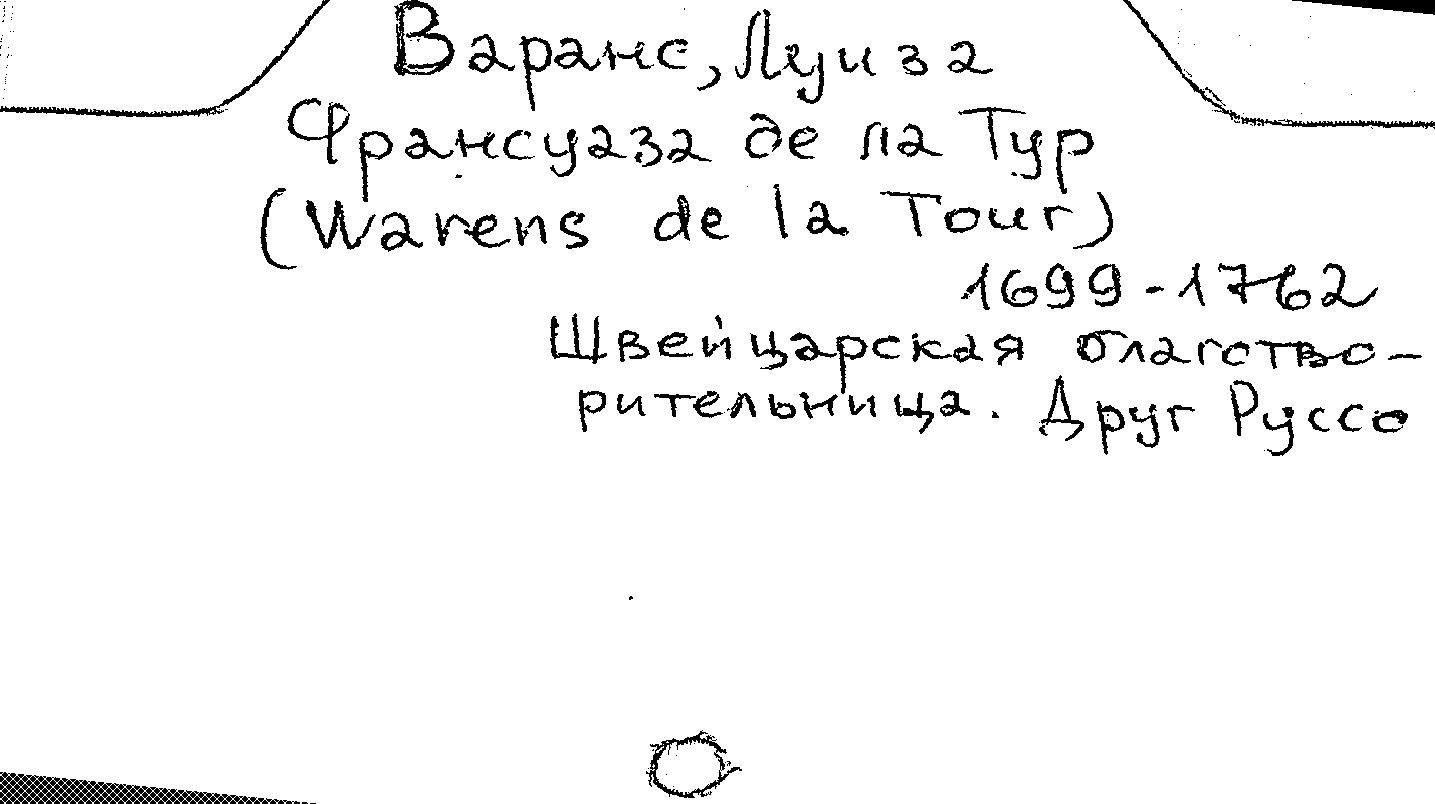 Варанс, Луиза
Франсуаза де ла Тур
(Warens de la Tour)
1699-1762
Швейцарская благство-
рительница. Друг Руссо